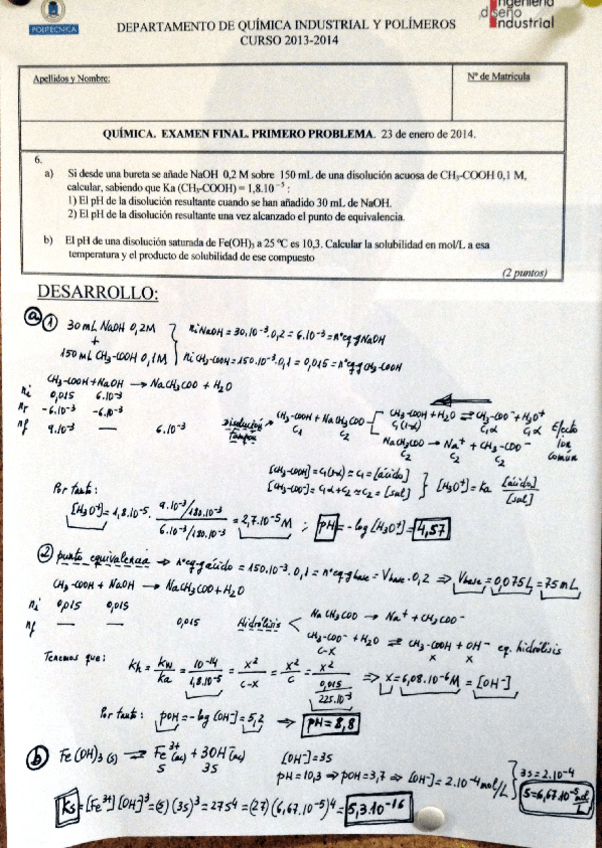 POLITECNICA
DEPARTAMENTO DE QUÍMICA INDUSTRIAL Y POLÍMEROS
CURSO 2013-2014
ingeniería
diseño
industrial
Apellidos y Nombre:
Nº de Matrícula
QUÍMICA. EXAMEN FINAL. PRIMERO PROBLEMA. 23 de enero de 2014.
6.
a) Si desde una bureta se añade NaOH 0,2 M sobre 150 mL de una disolución acuosa de CH₃-COOH 0,1 M,
calcular, sabiendo que Ka (CH₃-COOH) = 1,8.10⁻⁵ :
1) El pH de la disolución resultante cuando se han añadido 30 mL de NaOH.
2) El pH de la disolución resultante una vez alcanzado el punto de equivalencia.
b) El pH de una disolución saturada de Fe(OH)₃ a 25 ºC es 10,3. Calcular la solubilidad en mol/L a esa
temperatura y el producto de solubilidad de ese compuesto
(2 puntos)
DESARROLLO:
a 1 30 mL NaOH 0,2M
+
150 mL CH₃-COOH 0,1M
ni NaOH = 30.10⁻³.0,2 = 6.10⁻³ = nºeq-g NaOH
ni CH₃-COOH = 150.10⁻³.0,1 = 0,015 = nºeq-g CH₃-COOH
CH₃-COOH + NaOH → NaCH₃COO + H₂O
ni 0,015 6.10⁻³
nr -6.10⁻³ -6.10⁻³
nf 9.10⁻³ — 6.10⁻³
disolución Tampón
CH₃-COOH + NaCH₃COO
C₁ C₂
CH₃-COOH + H₂O ⇌ CH₃-COO⁻ + H₃O⁺
C₁(1-α) C₁α C₁α
NaCH₃COO → Na⁺ + CH₃-COO⁻
C₂ C₂ C₂
Efecto ion común
[CH₃-COOH] = C₁(1-α) ≈ C₁ = [ácido]
[CH₃-COO⁻] = C₁α + C₂ ≈ C₂ = [sal]
[H₃O⁺] = Ka [ácido]/[sal]
Por tanto:
[H₃O⁺] = 1,8.10⁻⁵. (9.10⁻³/180.10⁻³)/(6.10⁻³/180.10⁻³) = 2,7.10⁻⁵ M ; pH = -log [H₃O⁺] = 4,57
2 punto equivalencia → nºeq-g ácido = 150.10⁻³.0,1 = nºeq-g base = Vbase.0,2 ⇒ Vbase = 0,075L = 75 mL
CH₃-COOH + NaOH → NaCH₃COO + H₂O
ni 0,015 0,015
nf — — 0,015
Hidrólisis
NaCH₃COO → Na⁺ + CH₃COO⁻
CH₃-COO⁻ + H₂O ⇌ CH₃-COOH + OH⁻ eq. hidrólisis
C-x x x
Tenemos que: Kh = Kw/Ka = 10⁻¹⁴/1,8.10⁻⁵ = x²/(C-x) = x²/C = x²/(0,015/225.10⁻³) ⇒ x = 6,08.10⁻⁶ M = [OH⁻]
Por tanto: pOH = -log [OH⁻] = 5,2 ⇒ pH = 8,8
b Fe(OH)₃(s) ⇌ Fe³⁺(ac) + 3OH⁻(ac)
S 3S
[OH⁻] = 3S
pH = 10,3 ⇒ pOH = 3,7 ⇒ [OH⁻] = 2.10⁻⁴ mol/L
3S = 2.10⁻⁴
S = 6,67.10⁻⁵ mol/L
Ks = [Fe³⁺][OH⁻]³ = (S)(3S)³ = 27S⁴ = (27)(6,67.10⁻⁵)⁴ = 5,3.10⁻¹⁶